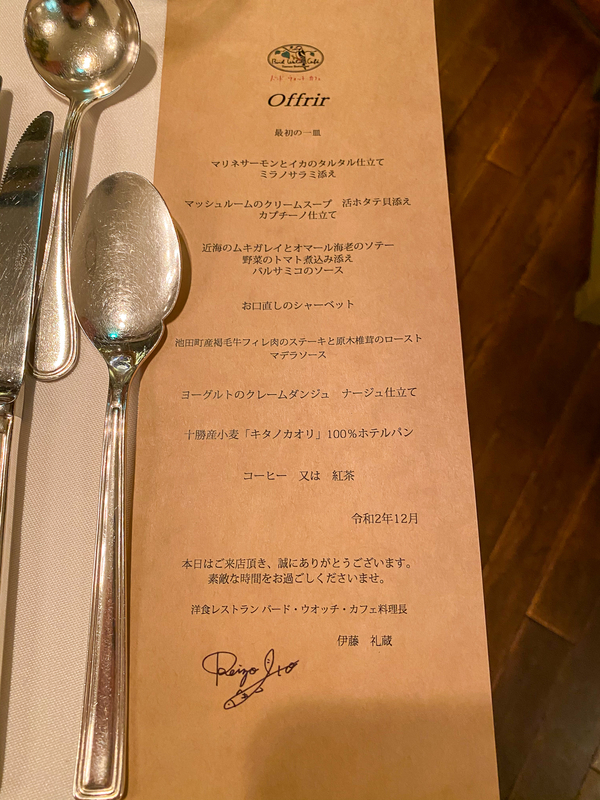 Bird Watch Cafe
バード ウォッチ カフェ
Offrir
最初の一皿
マリネサーモンとイカのタルタル仕立て
ミラノサラミ添え
マッシュルームのクリームスープ　活ホタテ貝添え
カプチーノ仕立て
近海のムキガレイとオマール海老のソテー
野菜のトマト煮込み添え
バルサミコのソース
お口直しのシャーベット
池田町産褐毛牛フィレ肉のステーキと原木椎茸のロースト
マデラソース
ヨーグルトのクレームダンジュ　ナージュ仕立て
十勝産小麦「キタノカオリ」100%ホテルパン
コーヒー　又は　紅茶
令和2年12月
本日はご来店頂き、誠にありがとうございます。
素敵な時間をお過ごしくださいませ。
洋食レストラン バード・ウオッチ・カフェ料理長
伊藤　礼蔵
Reizo Ito